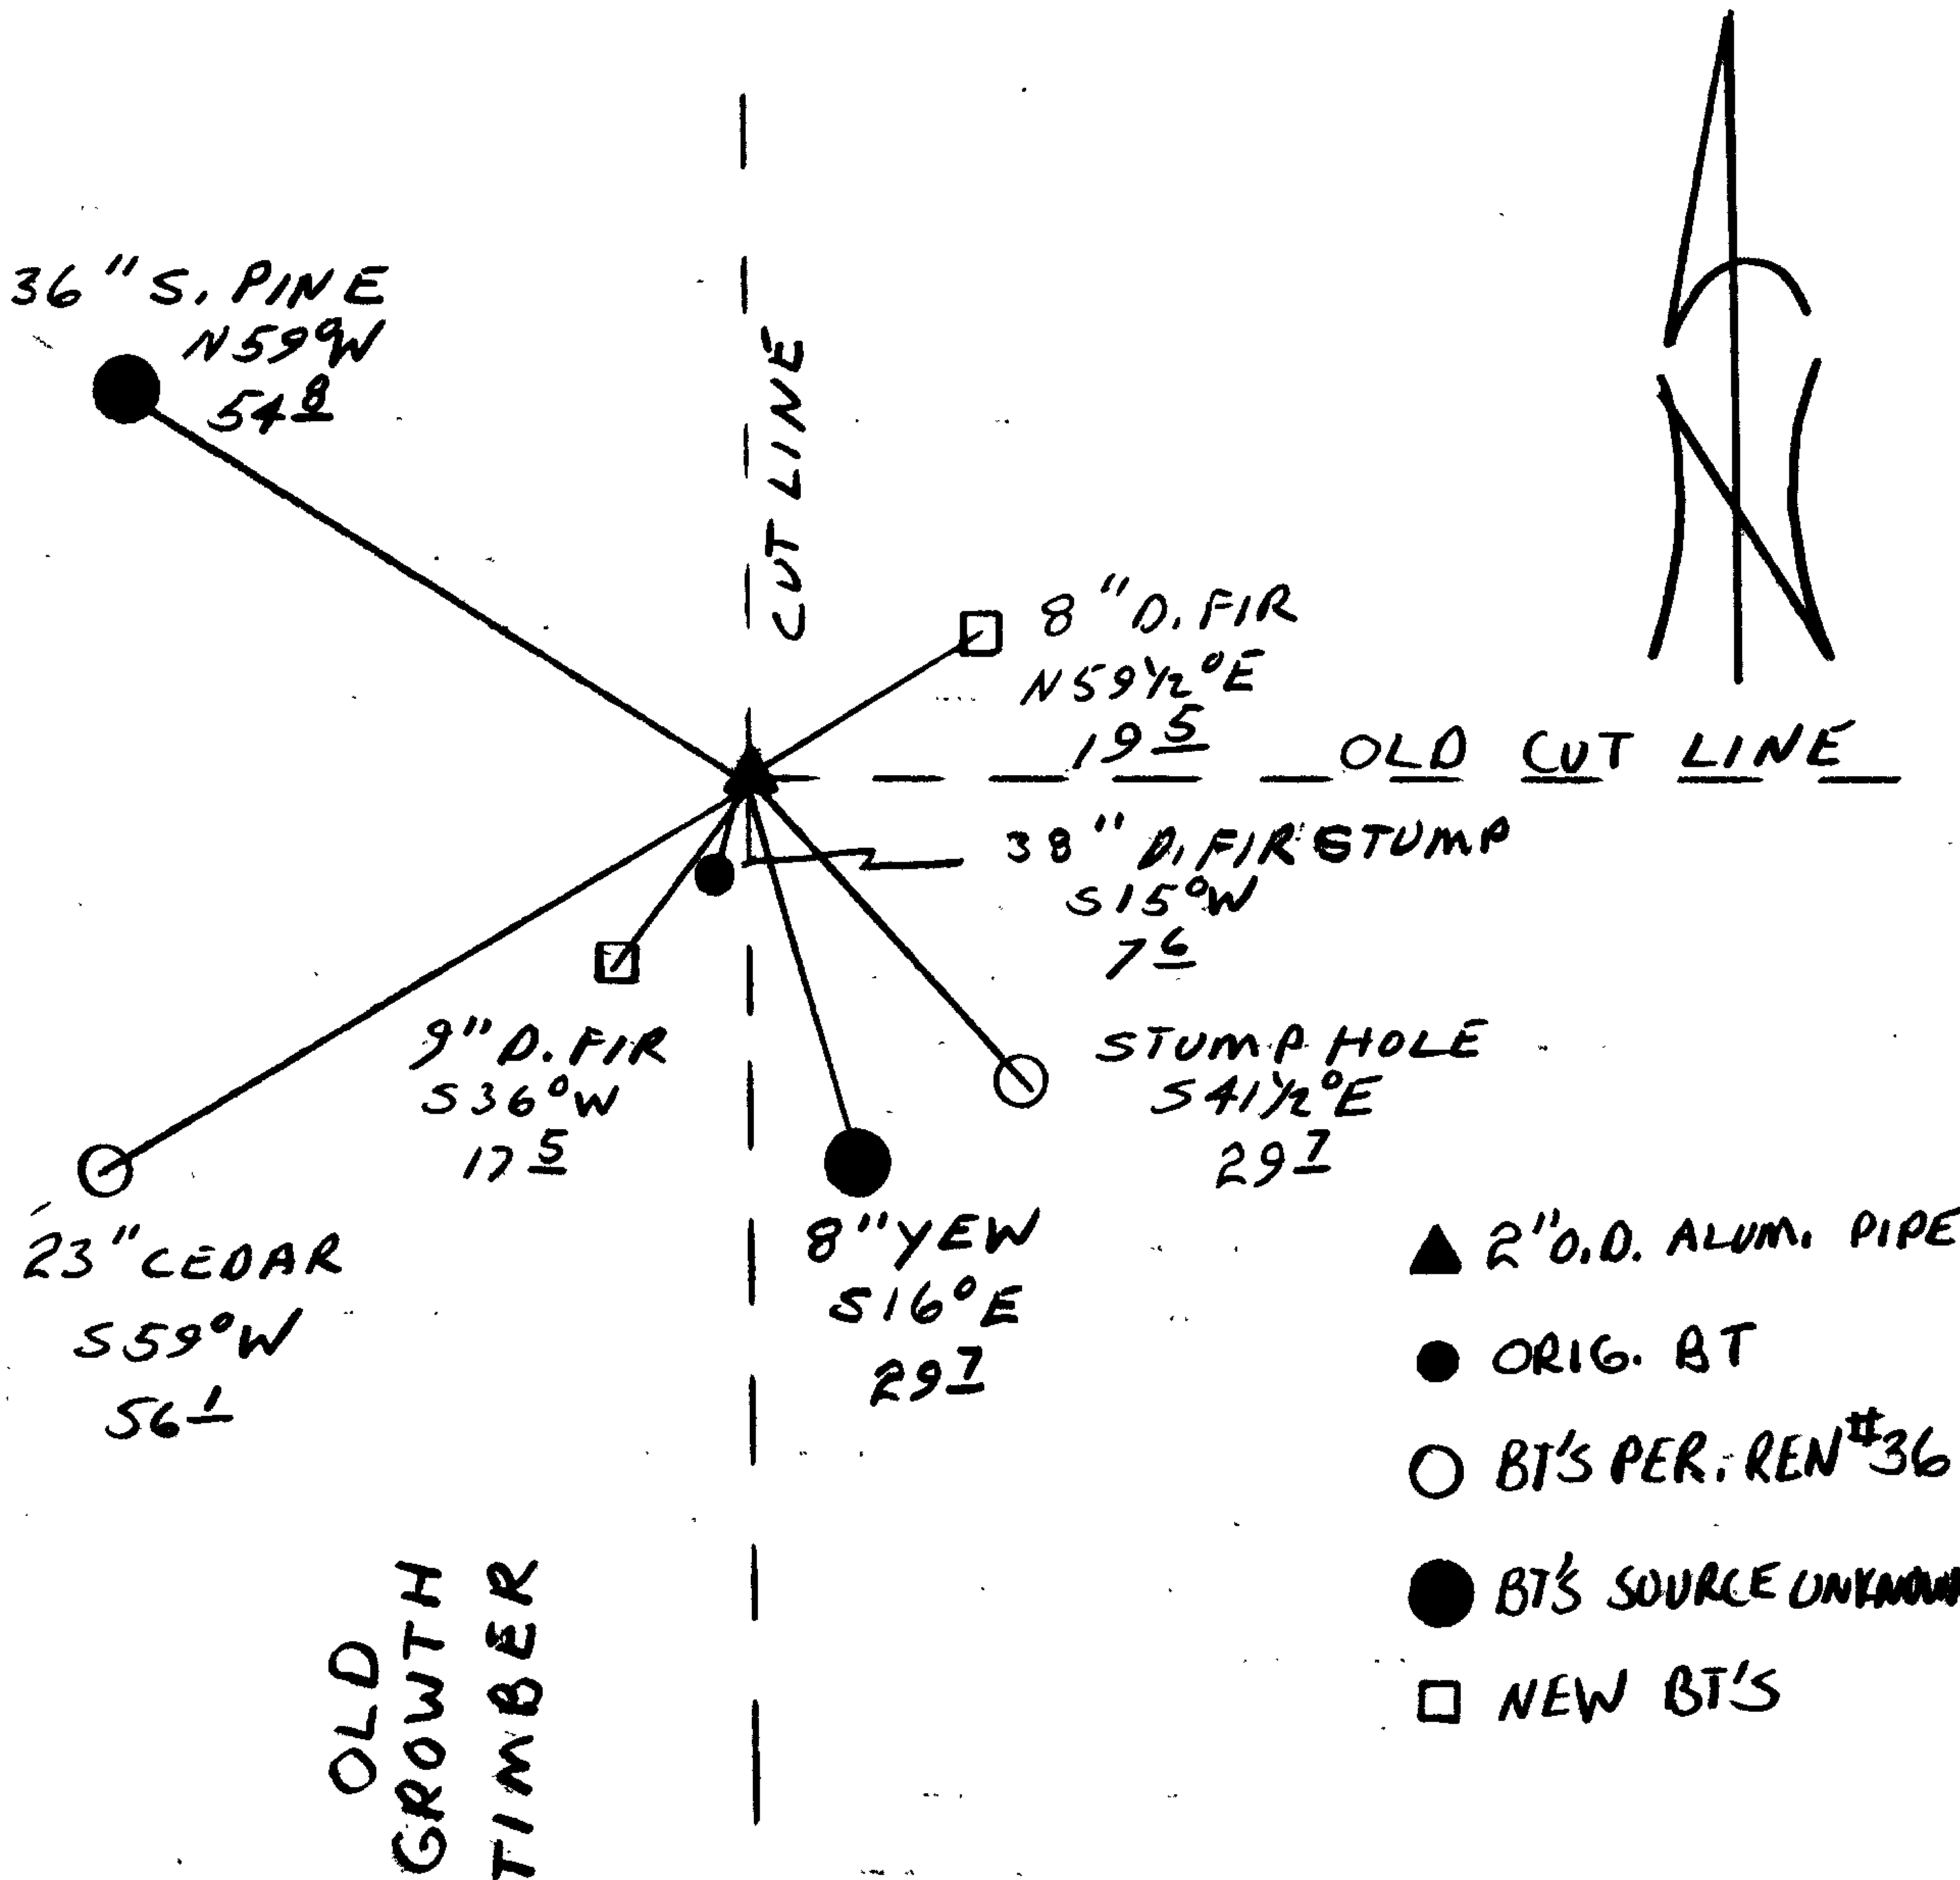 36" S. PINE
N59°W
54 8
CUT LINE
8" D. FIR
N59½°E
19 5
OLD CUT LINE
38" D. FIR STUMP
S15°W
7 6
9" D. FIR
S36°W
17 5
STUMP HOLE
S41½°E
29 7
23" CEDAR
S59°W
56 1
8" YEW
S16°E
29 7
▲ 2" O.D. ALUM. PIPE
● ORIG. BT
○ BT'S PER. REN #36
● BT'S SOURCE UNKNOWN
□ NEW BT'S
OLD
GROWTH
TIMBER
N